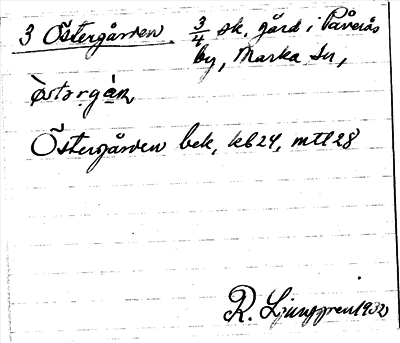 3 Östergården. 3/4 sk. gård i Påverås
by, Marka sn,
òstərgárn
Östergården bek, kb 24, mtl 28
R. Ljunggren 1932